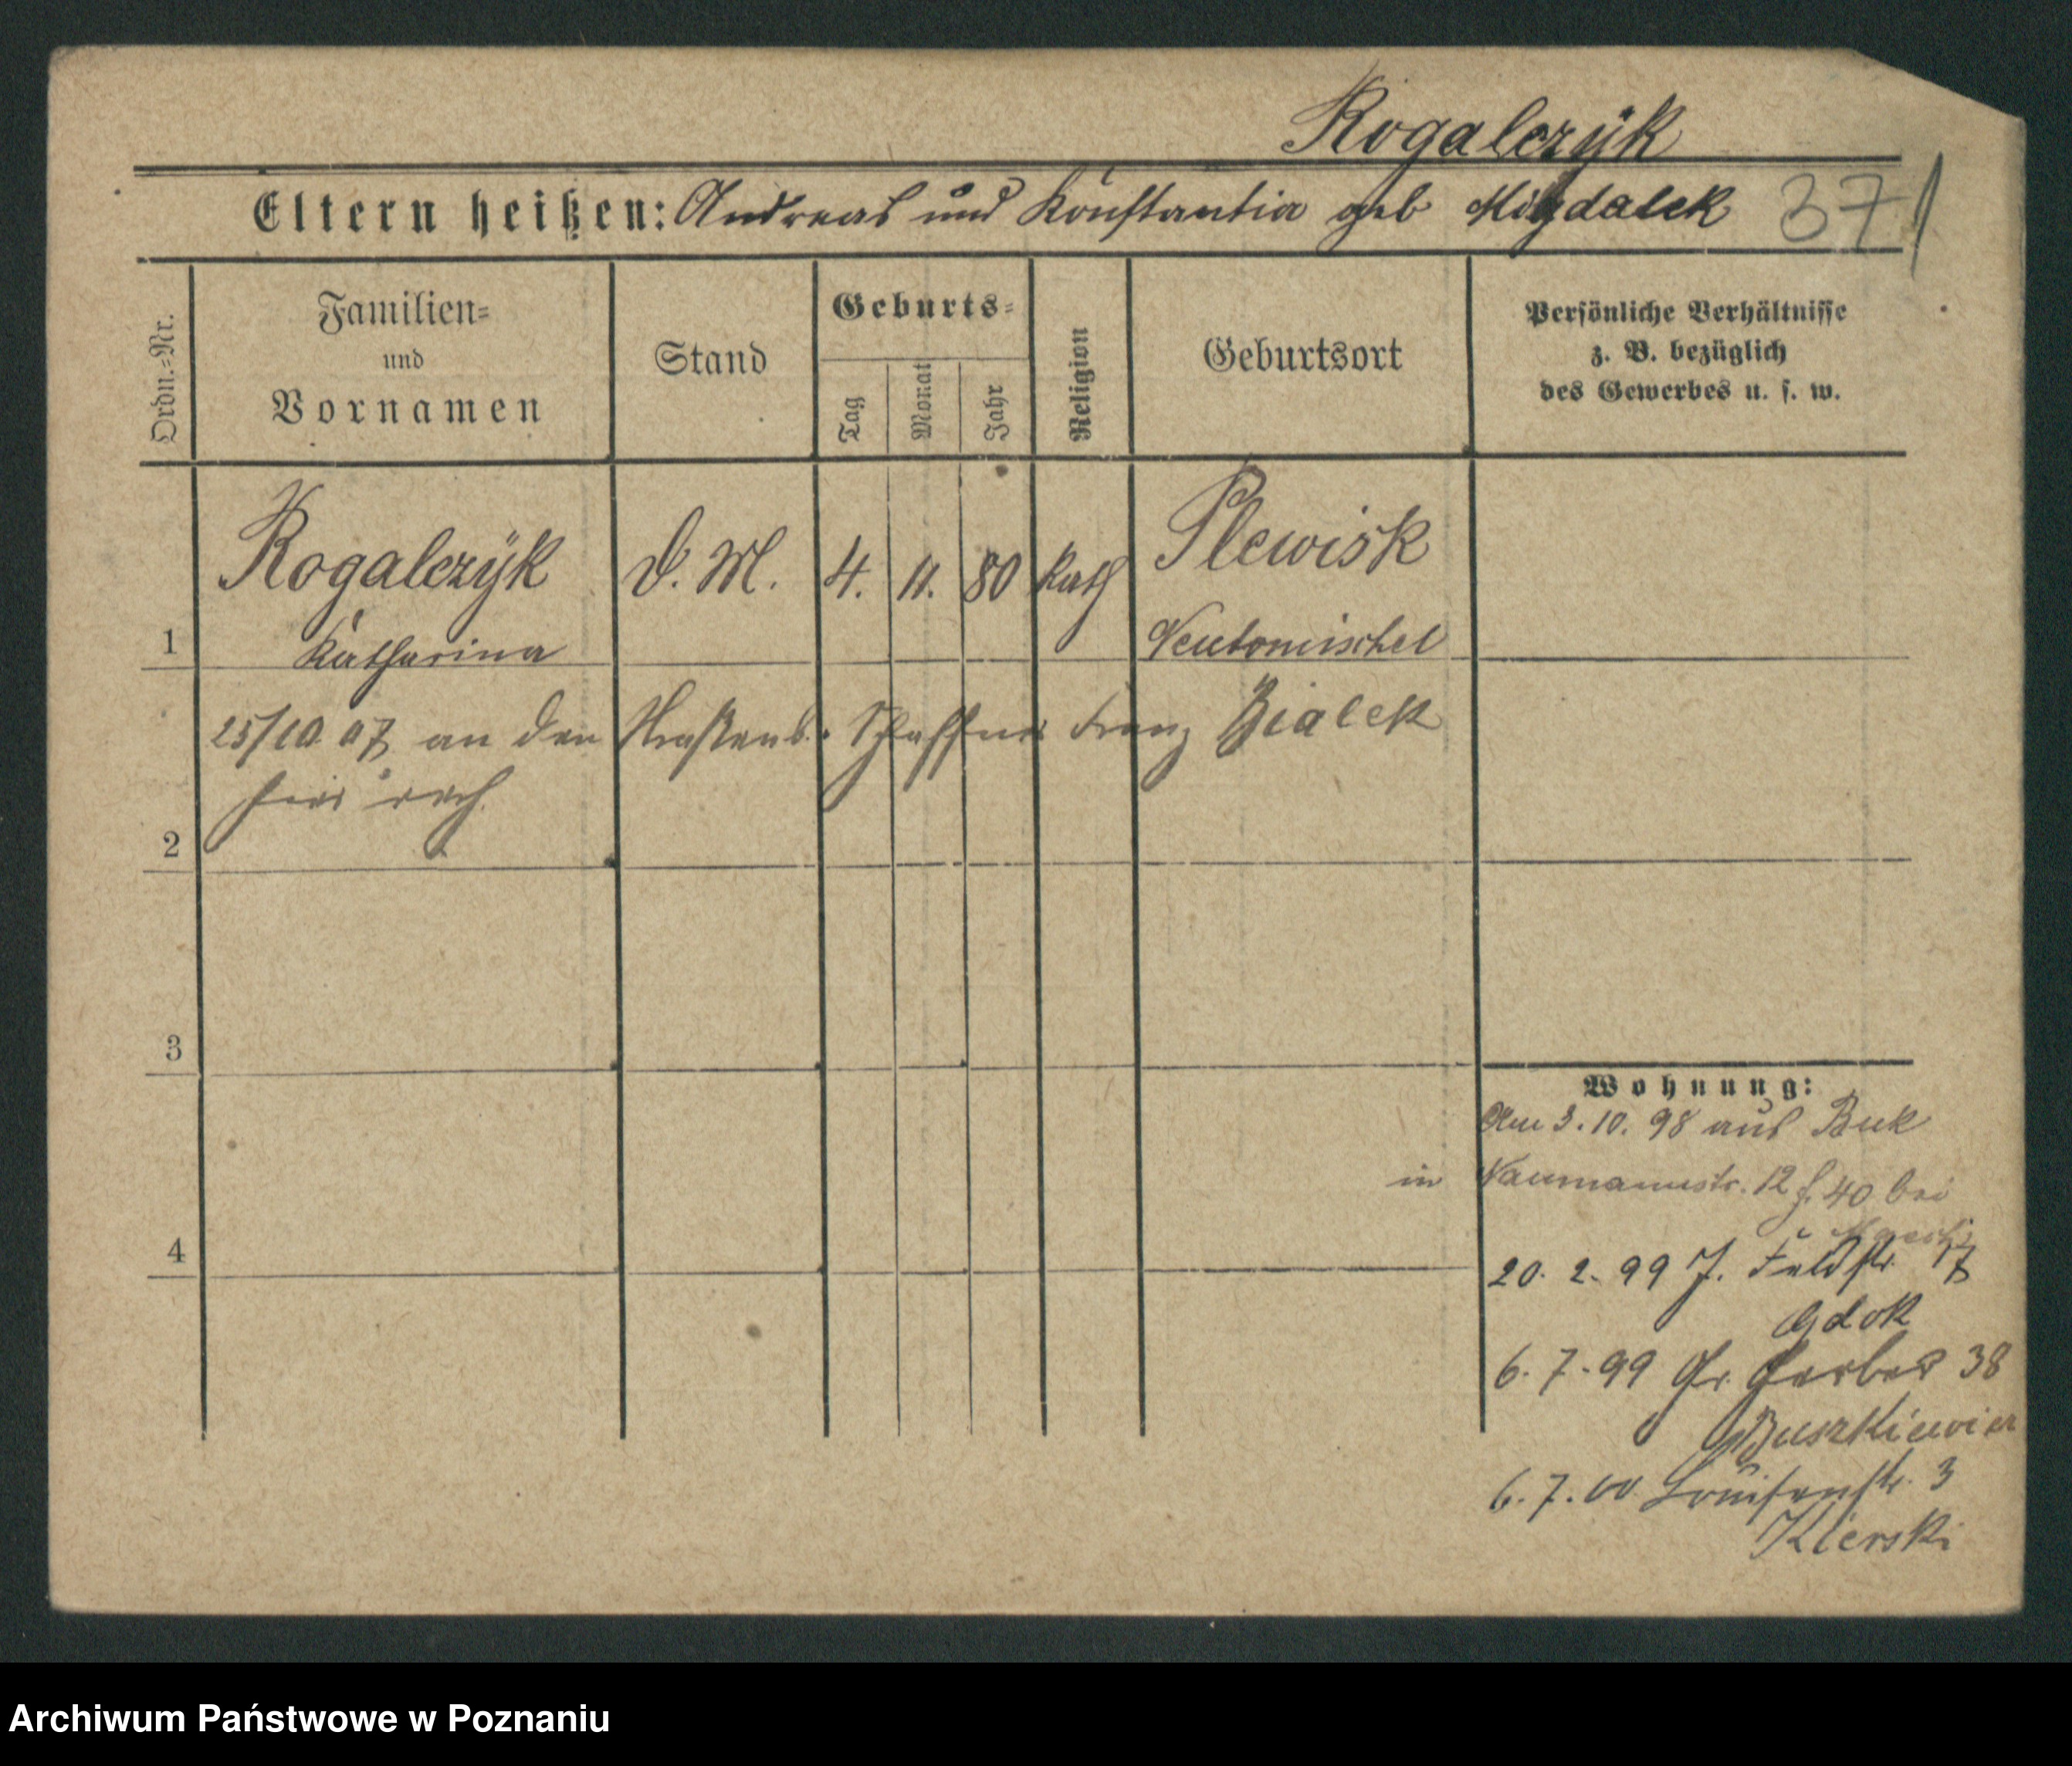 Rogalczÿk
Eltern heißen: Andreas und Konstantia geb Migdalek 371
Ordn.=Nr.
Familien=
und
Vornamen
Stand
Geburts=
Tag
Monat
Jahr
Religion
Geburtsort
Persönliche Verhältnisse
z. B. bezüglich
des Gewerbes u. s. w.
Rogalczÿk D. M. 4. 11. 80 kath Plewisk
1 Katharina Neutomischel
25/10 07 an den Straßenb. Schaffner Franz Bialek
hier verh.
2
3
Wohnung:
Am 3. 10. 98 aus Buk
in Naumannstr. 12 f. 40 bei
4
20. 2. 99 J. Feldstr. 17
Gdok
6. 7. 99 Gr. Gerber 38
Buszkiewicz
6. 7. 00 Louisenstr. 3
Kierski
Archiwum Państwowe w Poznaniu